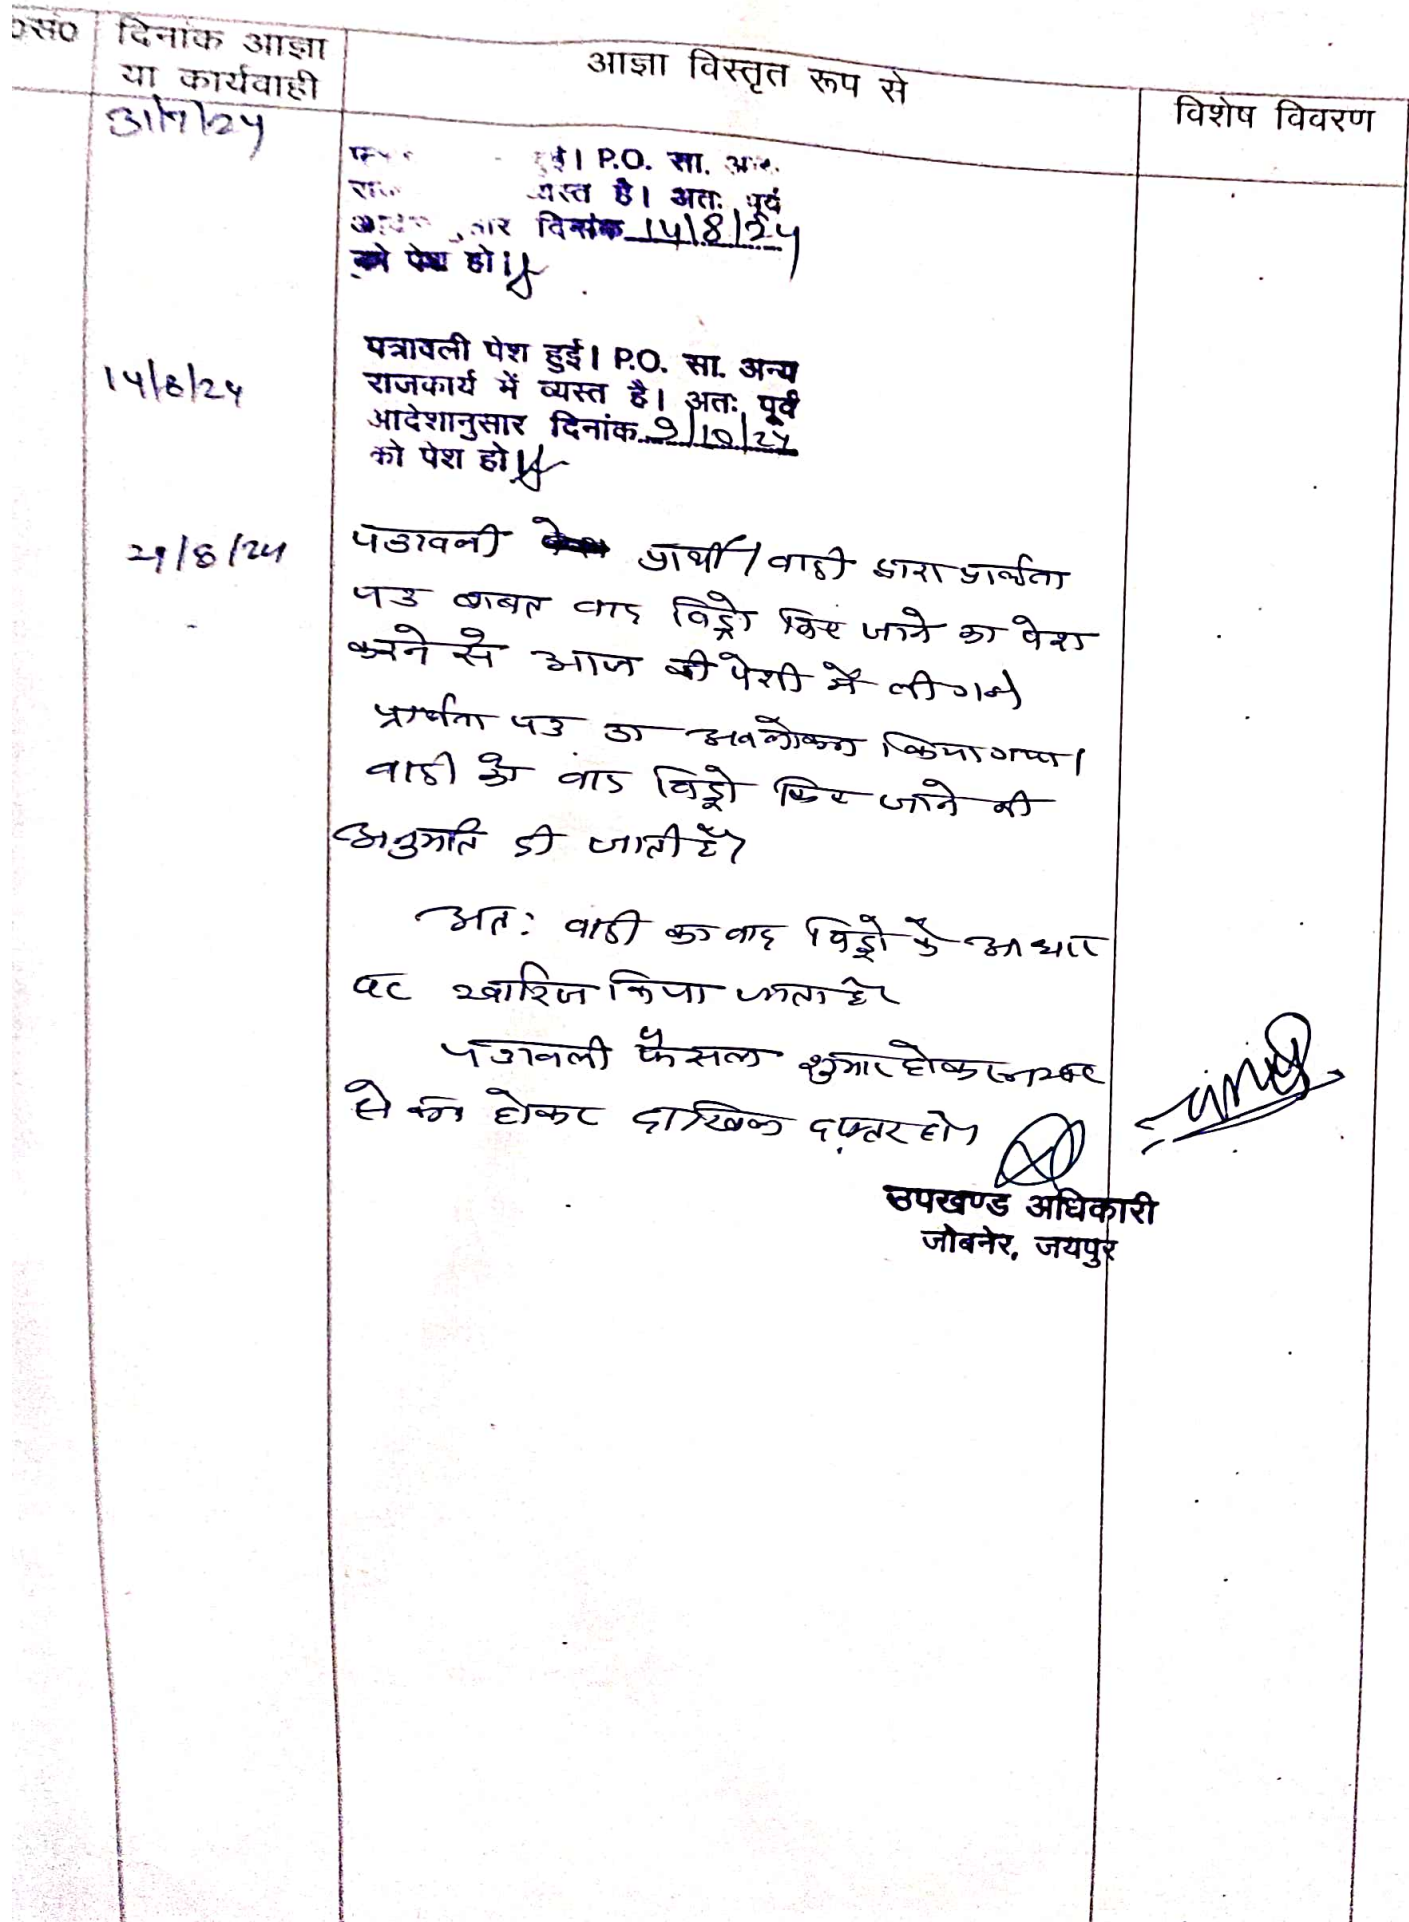 ०सं० दिनांक आज्ञा या कार्यवाही
आज्ञा विस्तृत रूप से
विशेष विवरण
31/7/24
हुई। P.O. सा.
व्यस्त है। अतः पूर्व
दिनांक 14/8/24
को पेश हो।
14/8/24
पत्रावली पेश हुई। P.O. सा. अन्य
राजकार्य में व्यस्त है। अतः पूर्व
आदेशानुसार दिनांक 9/10/24
को पेश हो।
29/8/24
पत्रावली प्रार्थी/वादी द्वारा प्रार्थना
पत्र बाबत वाद विड्रो किए जाने का पेश
करने से आज की पेशी में ली गयी
प्रार्थना पत्र का अवलोकन किया गया।
वादी को वाद विड्रो किए जाने की
अनुमति दी जाती है।
अतः वादी का वाद विड्रो के आधार
पर खारिज किया जाता है।
पत्रावली फैसल शुमार होकर नम्बर
से कम होकर दाखिल दफ्तर हो।
उपखण्ड अधिकारी
जोबनेर, जयपुर